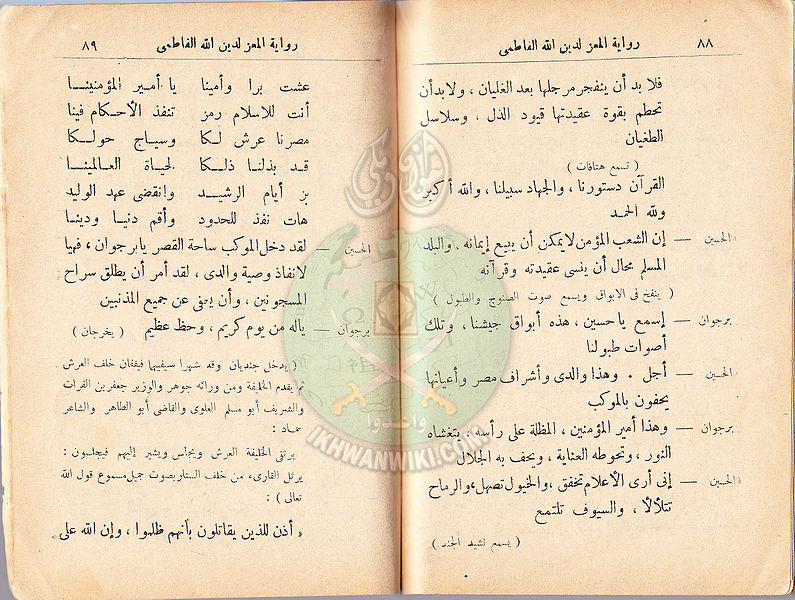 ٨٨ رواية المعز لدين الله الفاطمى
فلا بد أن ينفجر مرجلها بعد الغليان ، ولا بد أن
تحطم بقوة عقيدتها قيود الذل ، وسلاسل
الطغيان
( تسمع هتافات )
القرآن دستورنا ، والجهاد سبيلنا ، والله أكبر
ولله الحمد
الحسين — إن الشعب المؤمن لا يمكن أن يبيع إيمانه ، والبلد
المسلم محال أن ينسى عقيدته وقرآنه
( ينفخ فى الابواق ويسمع صوت الصنوج والطبول )
برجوان — إسمع ياحسين ، هذه أبواق جيشنا ، وتلك
أصوات طبولنا
الحسين — أجل . وهذا والدى وأشراف مصر وأعيانها
يحفون بالموكب
برجوان — وهذا أمير المؤمنين ، المظلة على رأسه ، يتغشاه
النور ، وتحوطه العناية ، ويحف به الجلال
الحسين — إنى أرى الأعلام تخفق ، والخيول تصهل ، والرماح
تتلألأ ، والسيوف تلتمع
( يسمع نشيد الجند )
رواية المعز لدين الله الفاطمى ٨٩
عشت برا وأمينا يا أمير المؤمنينا
أنت للاسلام رمز تنفذ الأحكام فينا
مصرنا عرش لكا وسياج حولكا
قد بذلنا ذلكا لحياة العالمينا
بز أيام الرشيد وانقضى عهد الوليد
هات نفذ للحدود وأقم دنيا ودينا
الحسين — لقد دخل الموكب ساحة القصر يابرجوان ، فهيا
لانفاذ وصية والدى ، لقد أمر أن يطلق سراح
المسجونين ، وأن يعفى عن جميع المذنبين
برجوان — ياله من يوم كريم ، وحظ عظيم ( يخرجان )
( يدخل جنديان وقد شهرا سيفيهما فيقفان خلف العرش
ثم يقدم الخليفة ومن ورائه جوهر والوزير جعفر بن الفرات
والشريف أبو مسلم العلوى والقاضى أبو الطاهر والشاعر
حماد :
يرتقى الخليفة العرش ويجلس ويشير إليهم فيجلسون :
يرتل القارىء من خلف الستار بصوت جميل مسموع قول الله
تعالى ) :
« أذن للذين يقاتلون بأنهم ظلموا ، وإن الله على
وأعدوا
IKHWANWIKI.COM